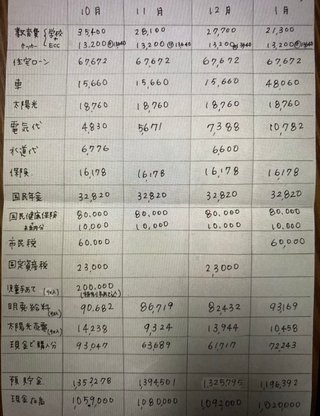 10月 11月 12月 1月
教育費 学校 35,400 28,100 27,700 21,300
ECC 13,200 13,200 13,200 13,200
住宅ローン 67,672 67,672 67,672 67,672
車 15,660 15,660 15,660 48060
太陽光 18,760 18,760 18,760 18,760
電気代 4830 5671 7388 10,782
水道代 6,776 6600
保険 16,178 16,178 16,178 16178
国民年金 32,820 32,820 32,820 32,820
国民健康保険 80,000 80,000 80,000 80,000
10,000 10,000 10,000 10,000
市民税 60,000 60,000
固定資産税 23,000 23,000
児童手当て 200,000
給料 90,682 86,719 82,432 93,169
太陽光売電 14,238 9,324 13,944 10,458
現金で購入分 93,047 63,689 61,717 72,243
預貯金 1,353,278 1,394,501 1,325,795 1,196,392
現金 1,059,000 1,080,000 1,092,000 1,020,000